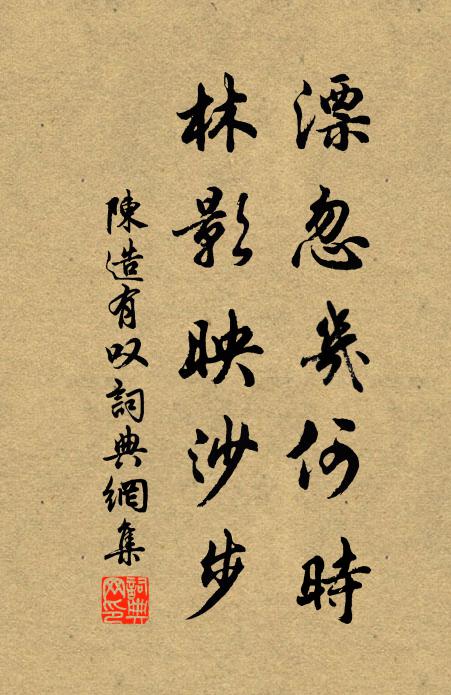 漂忽幾何時
林影映沙步
陳造有叹詞典網集
詞典网印